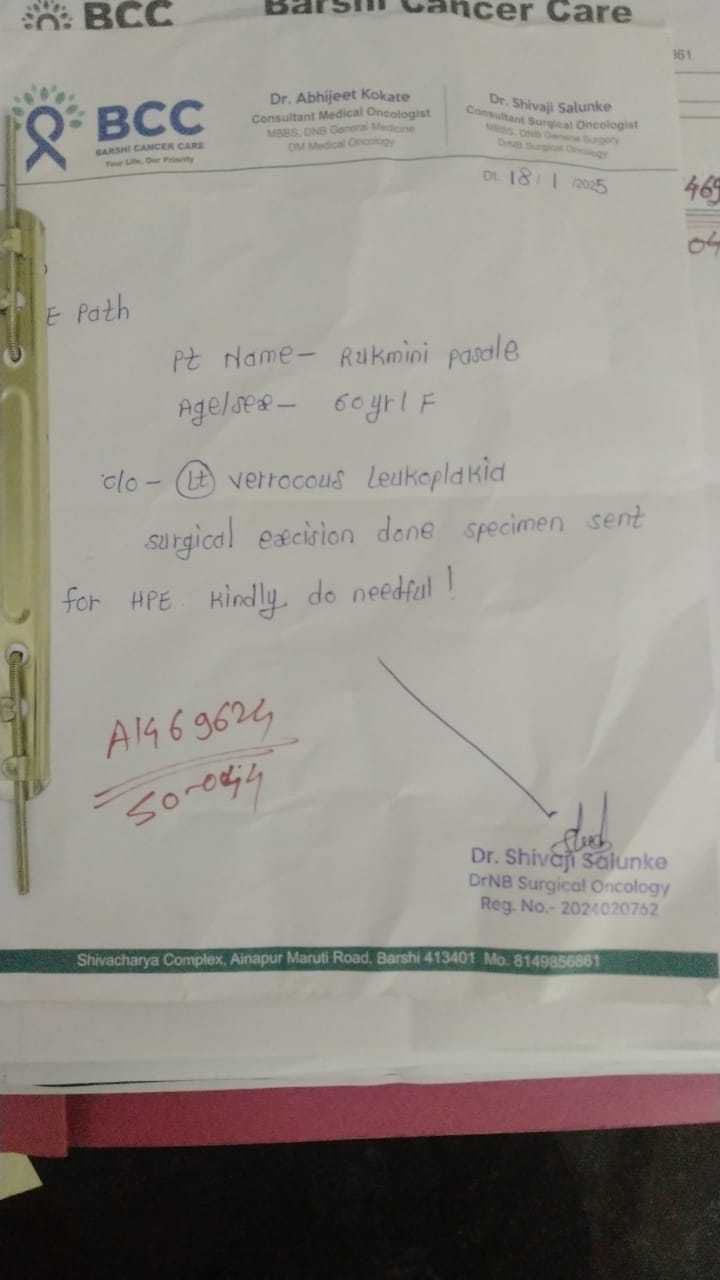 BCC
Barshi Cancer Care
861
BCC
BARSHI CANCER CARE
Your Life, Our Priority
Dr. Abhijeet Kokate
Consultant Medical Oncologist
MBBS, DNB General Medicine
DM Medical Oncology
Dr. Shivaji Salunke
Consultant Surgical Oncologist
MBBS, DNB General Surgery
DrNB Surgical Oncology
Dt. 18/1/2025
469
04
E Path
Pt Name- Rukmini pasale
Age/sex- 60yr/F
c/o - Lt verrocous Leukoplakia
surgical excision done specimen sent
for HPE. Kindly do needful!
A1469624
Dr. Shivaji Salunke
DrNB Surgical Oncology
Reg. No.- 2024020762
Shivacharya Complex, Ainapur Maruti Road, Barshi 413401 Mo. 8149856861